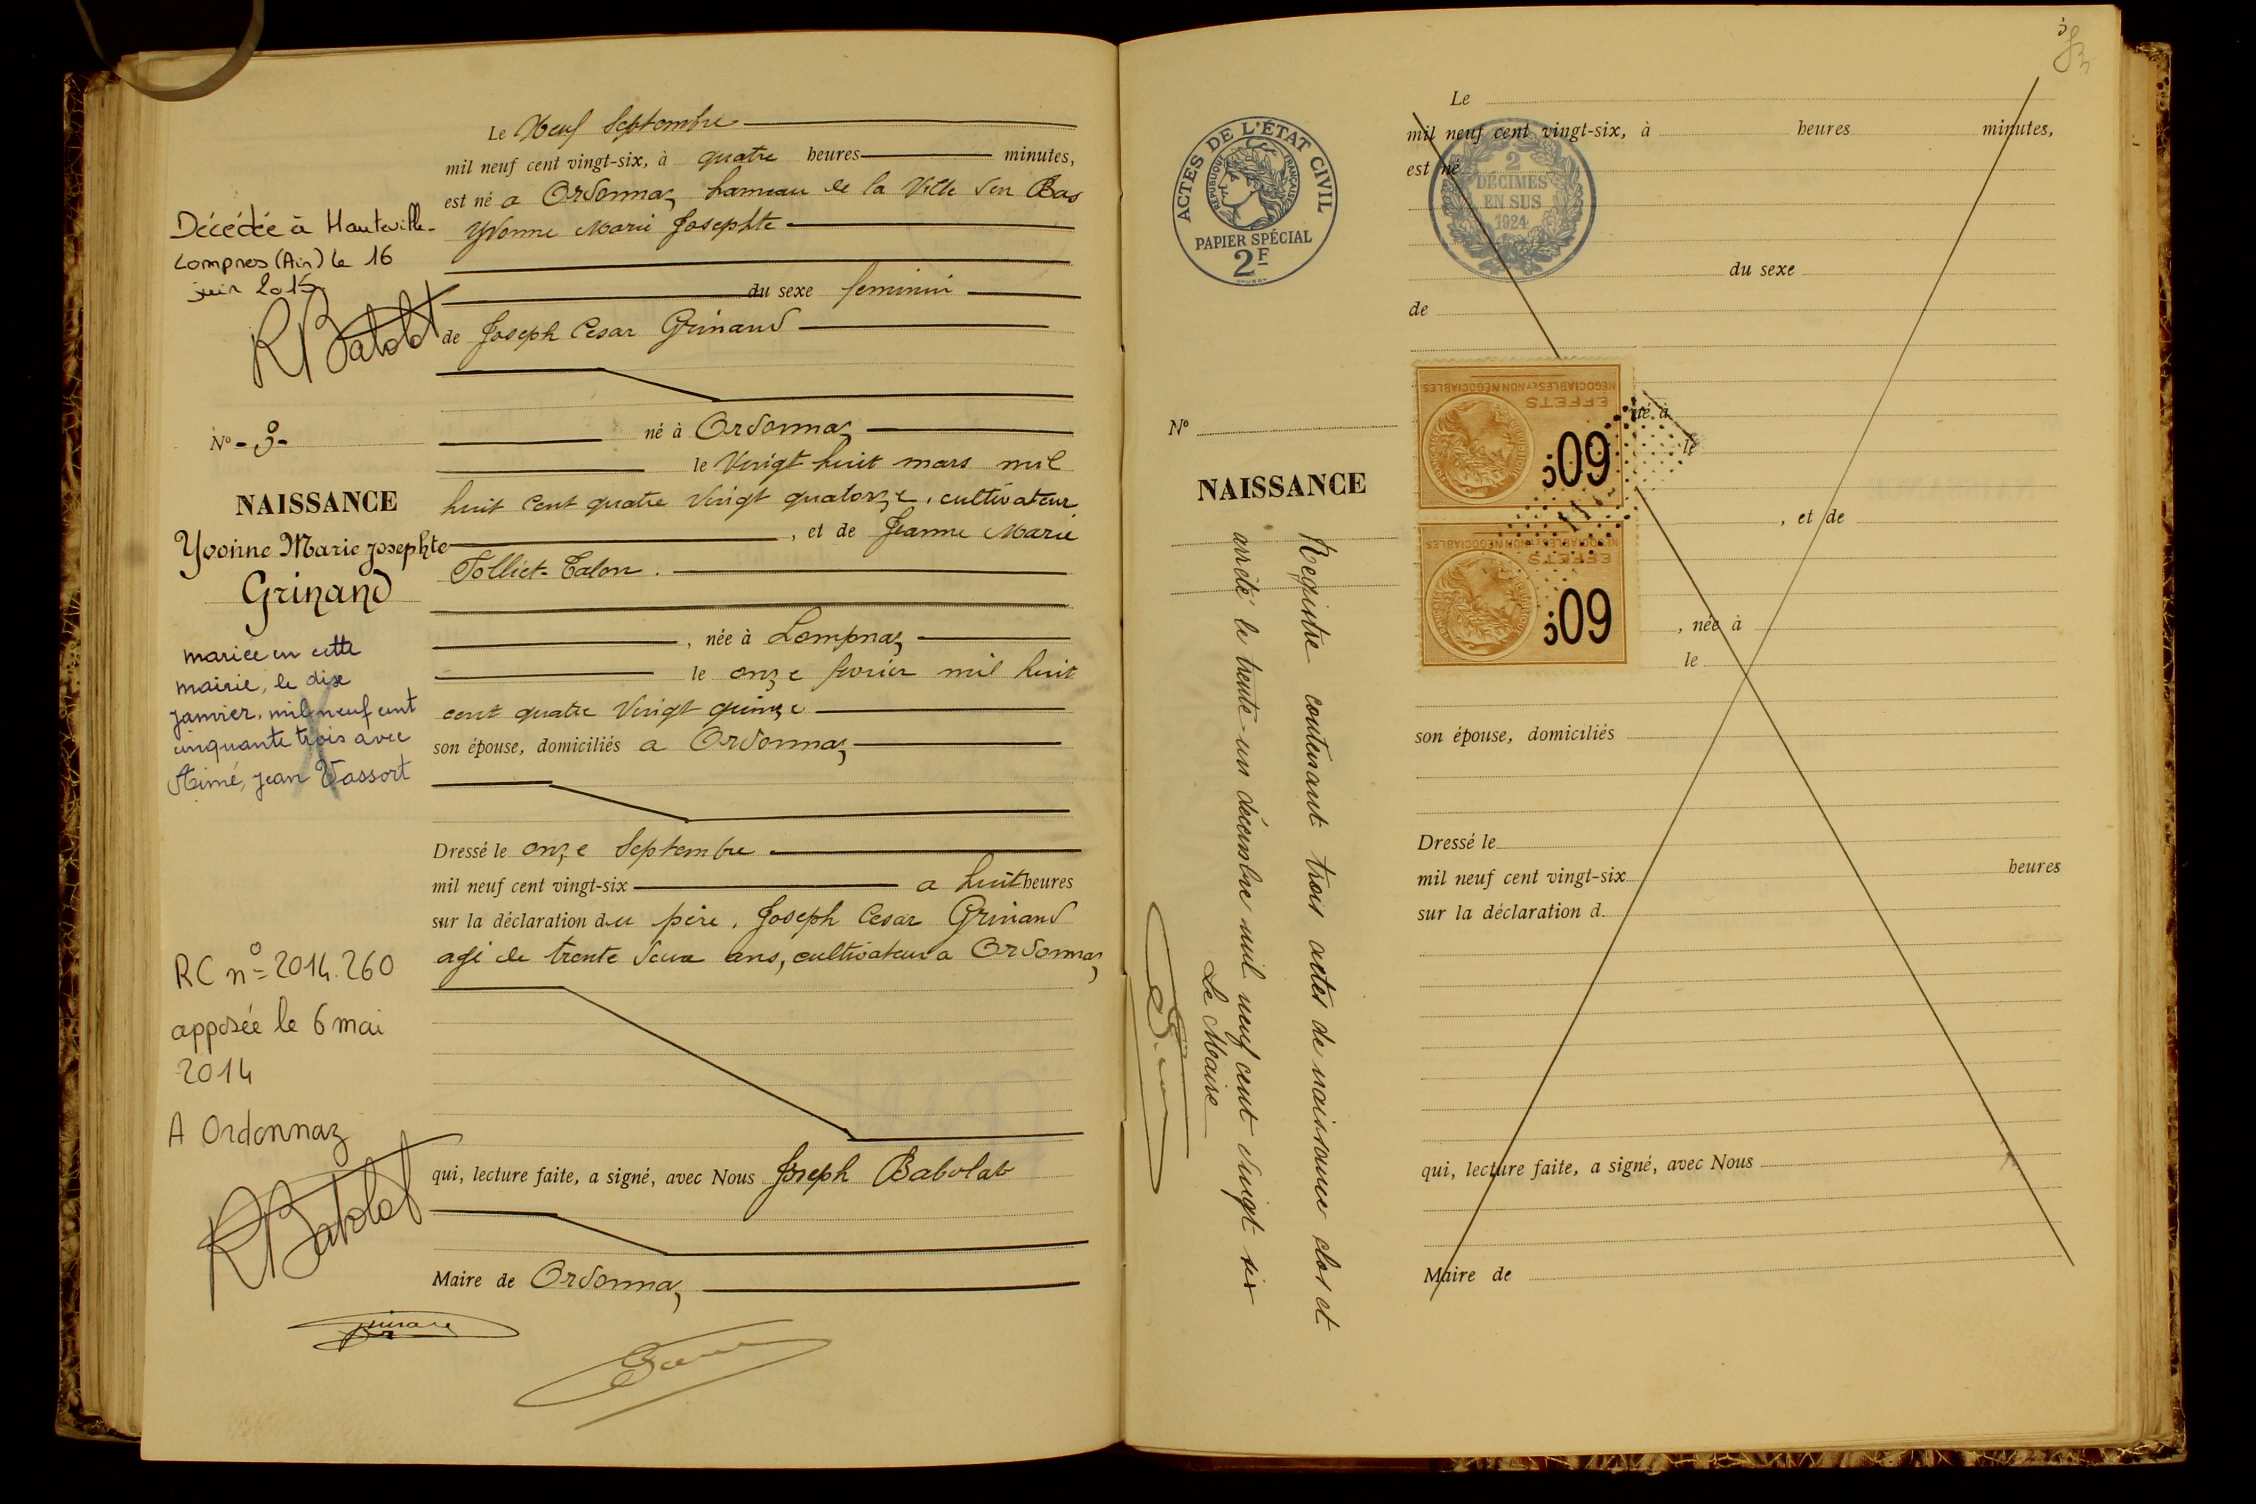 Le Neuf Septembre
mil neuf cent vingt-six, à quatre heures minutes,
est né a Ordonnaz hameau de la Ville d'en Bas
Yvonne Marie Josephte
du sexe feminin
de Joseph Cesar Grinand
né à Ordonnaz
le Vingt huit mars mil
huit cent quatre Vingt quatorze, cultivateur
, et de Jeanne Marie
Tolliet-Talon.
, née à Lompnaz
le onze fevrier mil huit
cent quatre Vingt quinze
son épouse, domiciliés a Ordonnaz
Dressé le onze Septembre
mil neuf cent vingt-six a huit heures
sur la déclaration du père, Joseph Cesar Grinand
agé de trente deux ans, cultivateur a Ordonnaz
qui, lecture faite, a signé, avec Nous Joseph Babolat
Maire de Ordonnaz
Décédée à Hauteville-
Lompnes (Ain) le 16
juin 2015
RBabolat
N° -3-
NAISSANCE
Yvonne Marie Josephte
Grinand
mariée en cette
mairie, le dix
janvier, mil neuf cent
cinquante trois avec
Aimé, Jean Vassort
RC n° 2014.260
apposée le 6 mai
2014
A Ordonnaz
RBabolat
Grinand
ACTES DE L'ÉTAT CIVIL
RÉPUBLIQUE FRANÇAISE
PAPIER SPÉCIAL
2F
N°
NAISSANCE
Registre contenant trois actes de naissance clos et
arrêté le trente-un décembre mil neuf cent vingt six
Le Maire
3
Le
mil neuf cent vingt-six, à heures minutes,
est né
2
DÉCIMES
EN SUS
1924
du sexe
de
né à
le
EFFETS
NÉGOCIABLES ET NON NÉGOCIABLES
60c
EFFETS
NÉGOCIABLES ET NON NÉGOCIABLES
60c
, et de
, née à
le
son épouse, domiciliés
Dressé le
mil neuf cent vingt-six heures
sur la déclaration d
qui, lecture faite, a signé, avec Nous
Maire de